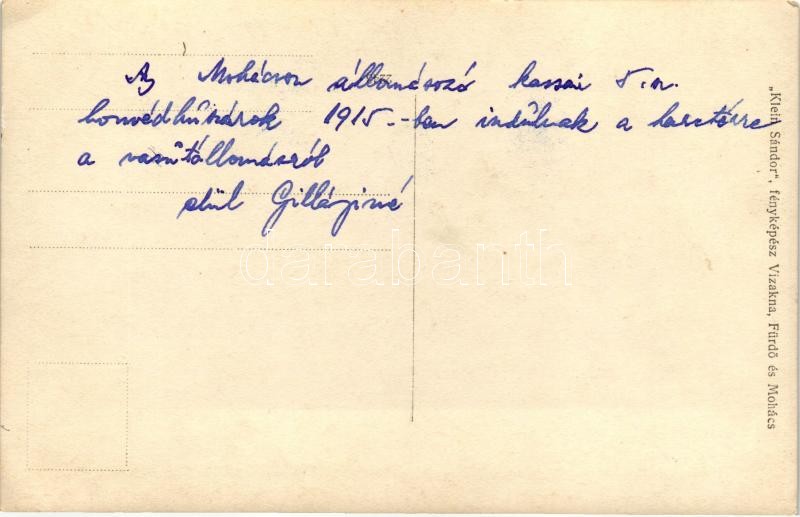 Az Mohácson állomásozó kassai 5.h.
honvédhuszárok 1915.-ben indulnak a harctérre
a vasútállomásról
elül
darabanth
„Klein Sándor”, fényképész Vizakna, Fürdő és Mohács